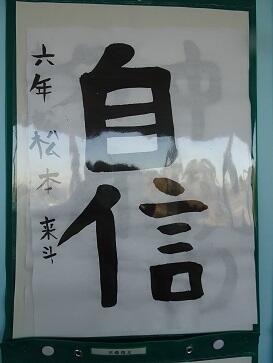 自信
六年 松本 来斗